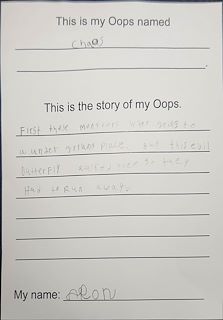 This is my Oops named
Chaos
This is the story of my Oops.
First these monsters were going to
a under ground place. But this evil
Butterfly
so they
Had to Run away.
My name: Aron